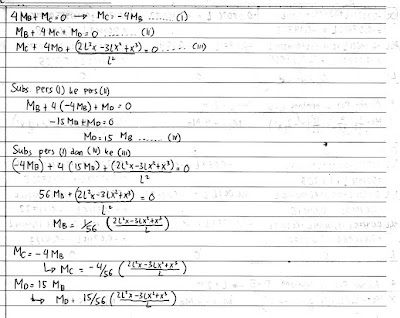 4 MB + MC = 0 → MC = -4MB ...... (I)
MB + 4 MC + MD = 0 ......... (II)
MC + 4MD + (2L²x - 3Lx² + x³) = 0 ...... (III)
L²
Subs pers (I) ke pers (II)
MB + 4 (-4MB) + MD = 0
-15 MB + MD = 0
MD = 15 MB ...... (IV)
Subs pers (I) dan (IV) ke (III)
(-4MB) + 4 (15 MB) + (2L²x - 3Lx² + x³) = 0
L²
56 MB + (2L²x - 3Lx² + x³) = 0
L²
MB = 1/56 (2L²x - 3Lx² + x³ / L)
MC = -4 MB
↳ MC = -4/56 (2L²x - 3Lx² + x³ / L)
MD = 15 MB
↳ MD = 15/56 (2L²x - 3Lx² + x³ / L)